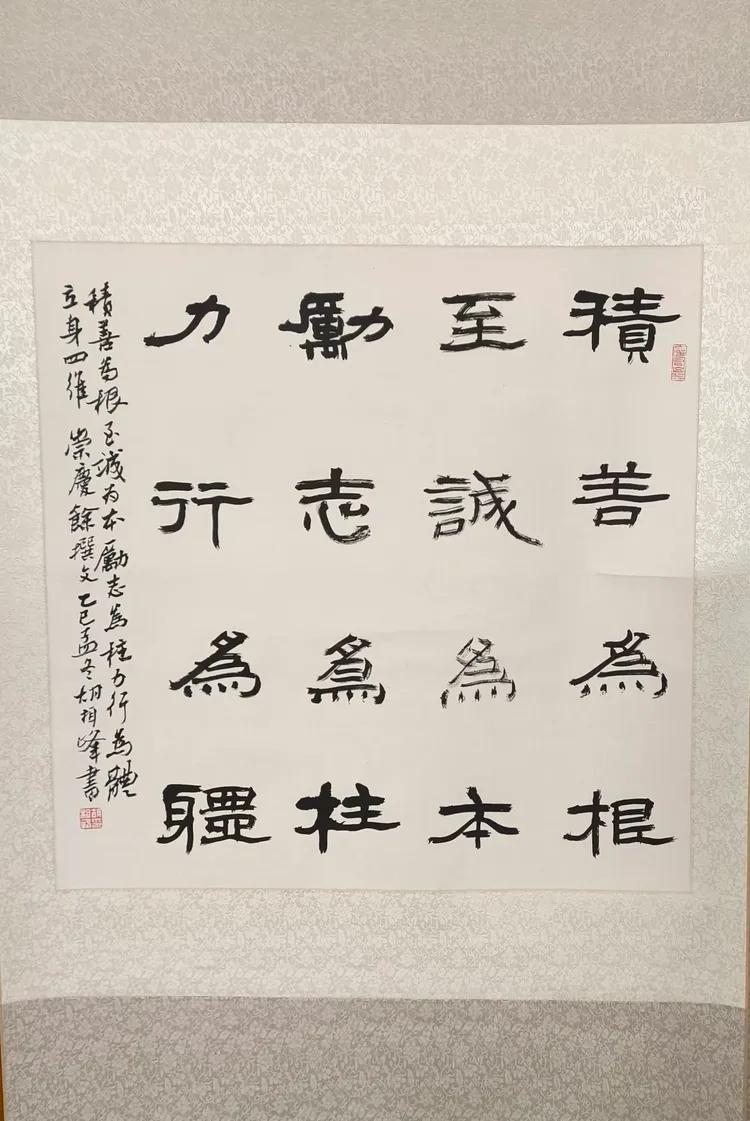 積善為根
至誠為本
勵志為柱
力行為軆
積善為根至誠为本勵志為柱力行為體
立身四維 崇慶餘撰文乙巳孟冬胡相峰書